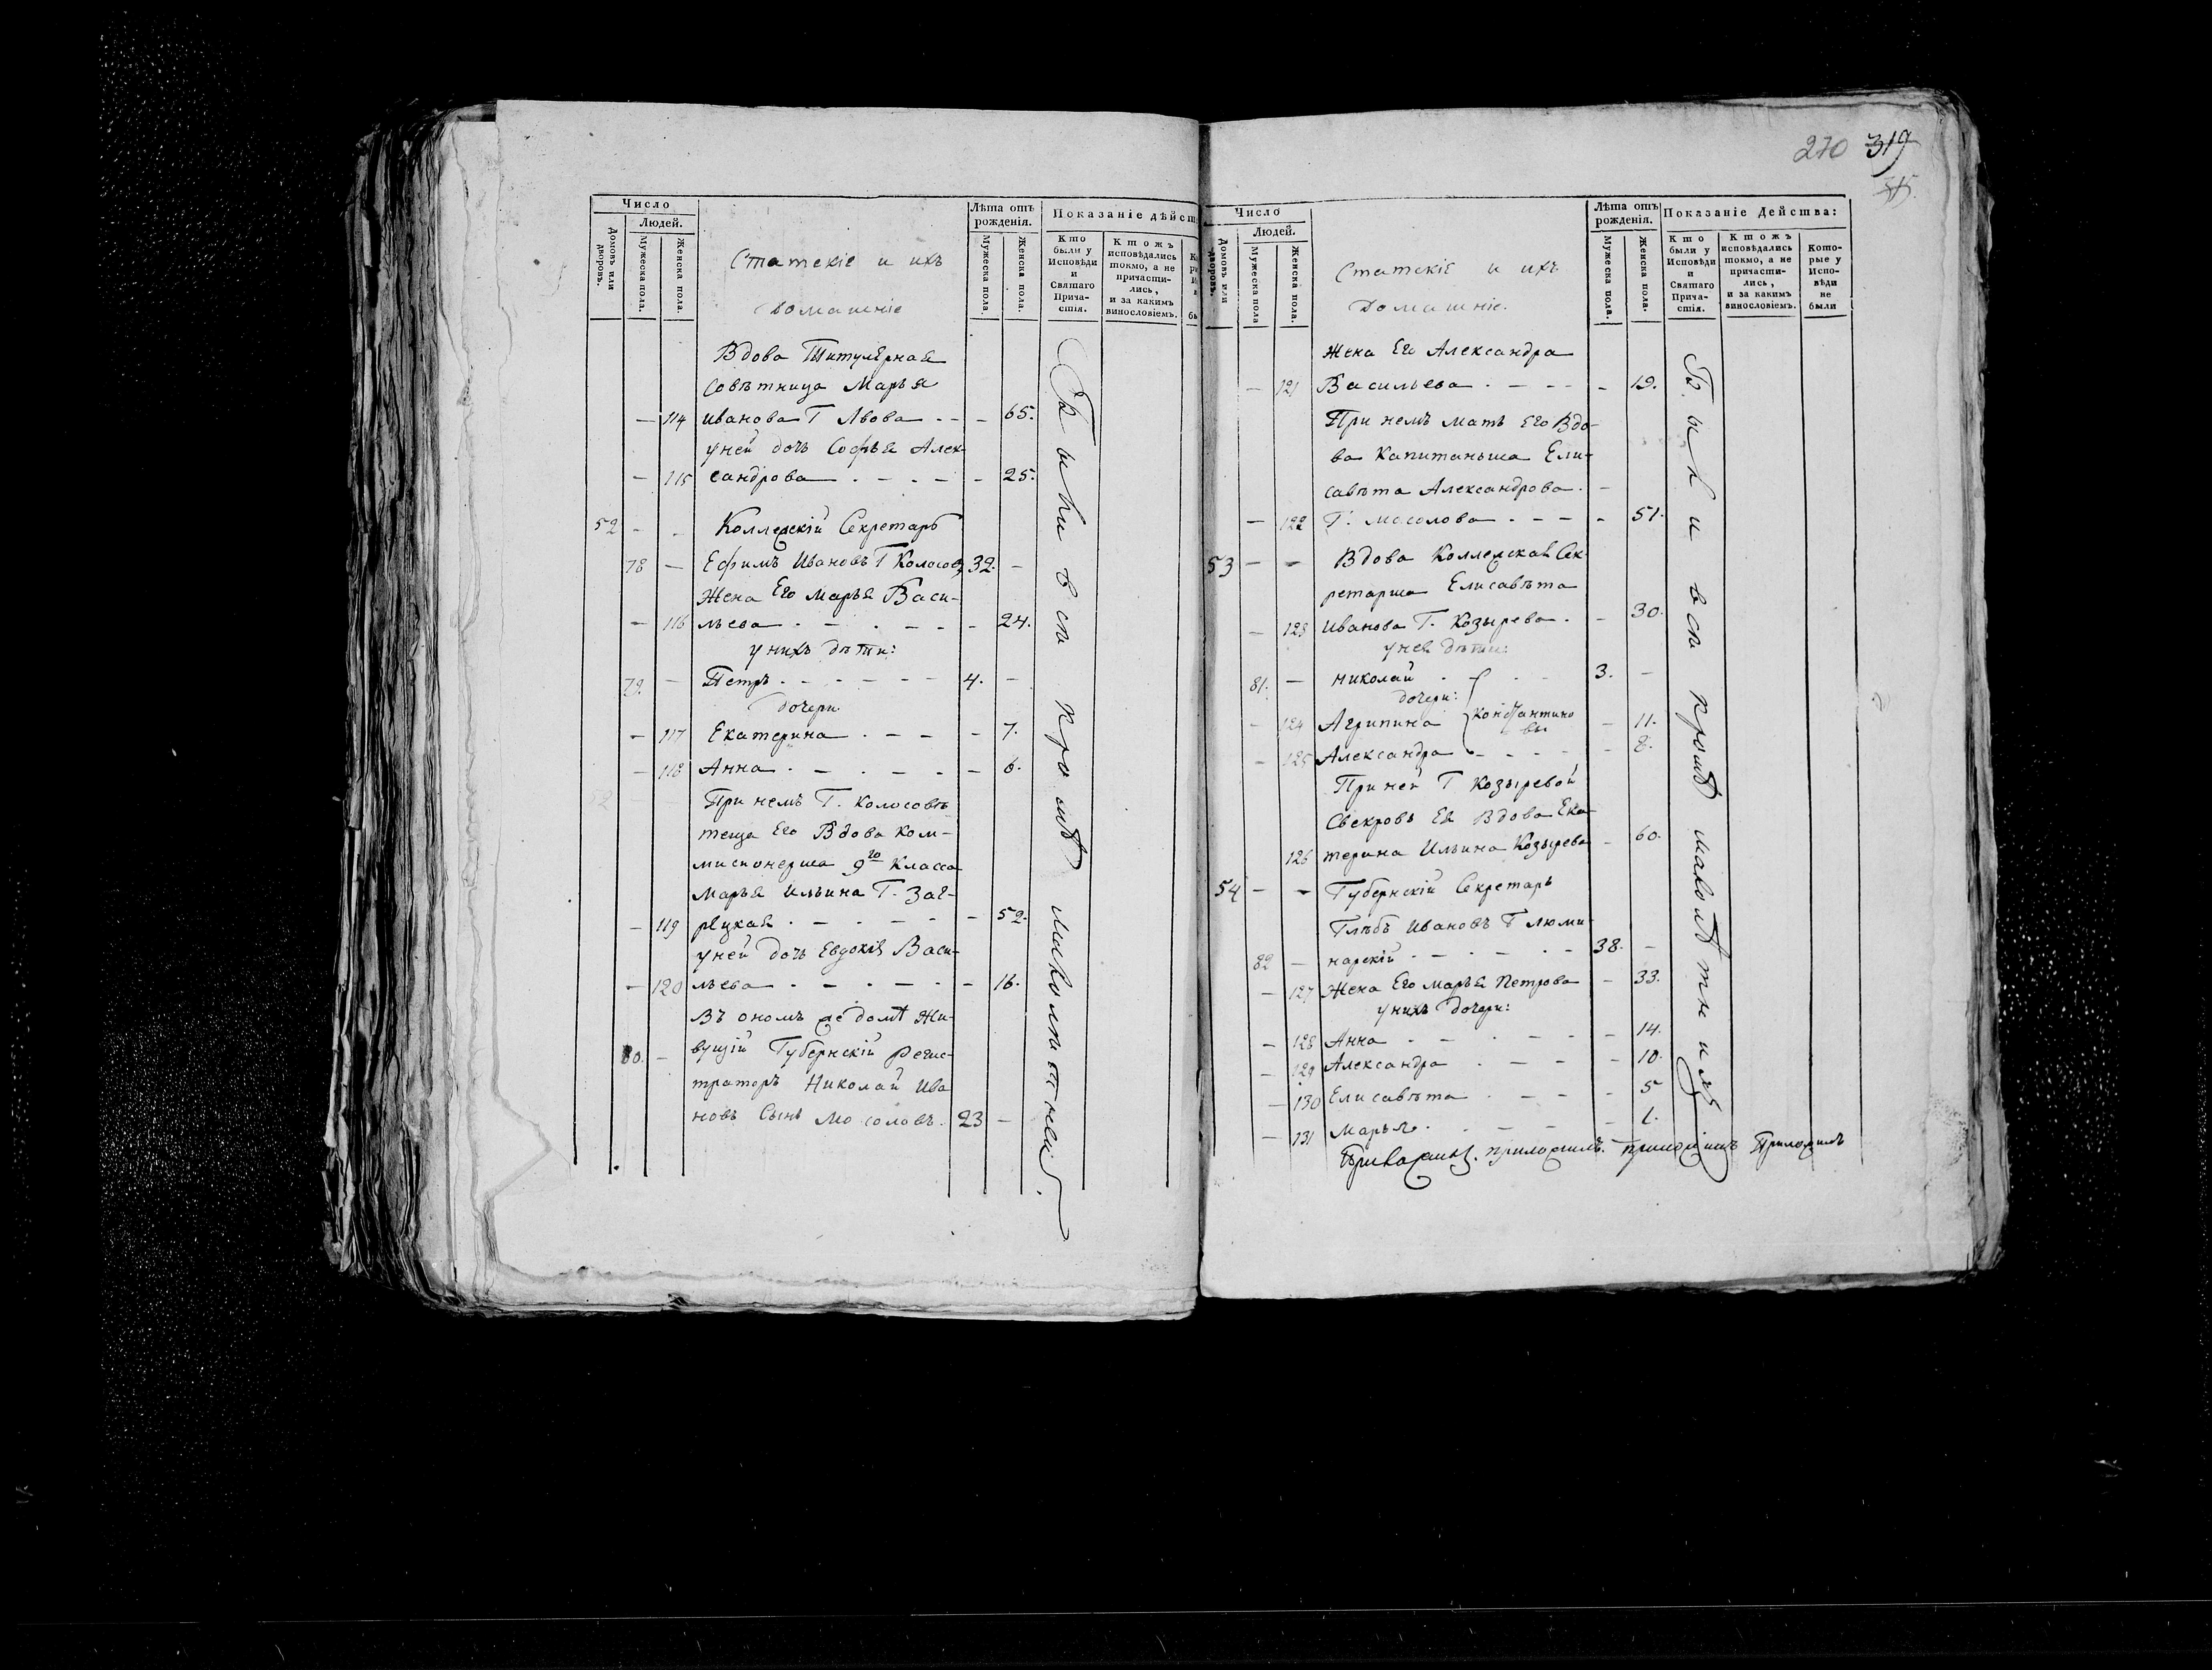 Число
Людей.
Домовъ или дворовъ.
Мужеска пола.
Женска пола.
Статскіе и ихъ
домашніе
Лѣта отъ рожденія.
Мужеска пола.
Женска пола.
Показаніе дѣйст
Кто были у Исповѣди и Святаго Прича-стія.
Ктожъ исповѣдались токмо, а не причасти-лись, и за какимъ винословіемъ.
Вдова Титулярная
Совѣтница Марья
— 114 Иванова Г Львова - - - 65.
у ней дочь Софья Алек-
— 115 сандрова . - - - - 25.
52 - - Коллежскій Секретарь
78 — Ефимъ Ивановъ Г Колосовъ 32. -
Жена Его Марья Васи-
— 116 льева . - . - - - 24.
у нихъ дѣти:
79. — Петръ . - - - - - 4. -
дочери
— 117 Екатерина . - - - 7.
— 118 Анна . - . - - - 6.
При немъ Г. Колосовѣ
теща Его Вдова Ком-
мисионерша 9го Класса
Марья Ильина Г.
— 119 - 52.
у ней дочь Евдокія Васи-
— 120 льева . - . - - - 16.
Въ ономъ же домѣ Жи-
80. — вущій Губернскій Регис-
траторъ Николай Ива
новъ Сынъ Мосоловъ. 23 —
Были вси кромѣ малолѣтнихъ.
270 319
515
Число
Людей.
Домовъ или дворовъ.
Мужеска пола
Женска пола.
Статскіе и ихъ
Домашніе.
Лѣта отъ рожденія.
Мужеска пола.
Женска пола.
Показаніе Действа:
Кто были у Исповѣди и Святаго Прича-стія.
Ктожъ исповѣдались токмо, а не причасти-лись, и за какимъ винословіемъ.
Кото-рые у Испо-вѣди не были
Жена Его Александра
— 121 Васильева . - - - - 19.
При немъ мать Его Вдо-
ва Капитанша Ели-
савѣта Александрова. -
— 122 Г. Мосолова . - - - 51.
53 — — Вдова Коллежская Сек-
ретарша Елисавѣта
— 123 Иванова Г. Козырева . - 30.
у нея дѣти:
81. — Николай . - . - 3. -
дочери:
— 124 Агрипина Константино вы - 11.
— 125 Александра - - - - 8.
При ней Г Козыревой
Свекровь Ея Вдова Ека-
126 терина Ильина Козырева - 60.
54 — — Губернскій Секретарь
Глѣбъ Ивановъ Г Люми-
82 — нарскій . - . - . - 38. -
— 127 Жена Его Марья Петрова - 33.
у нихъ дочери:
— 128 Анна . - . - - - 14.
— 129 Александра . - - - 10.
— 130 Елисавѣта . - - - 5
— 131 Марья . - - - - 1.
Были вси кромѣ малолѣтнихъ